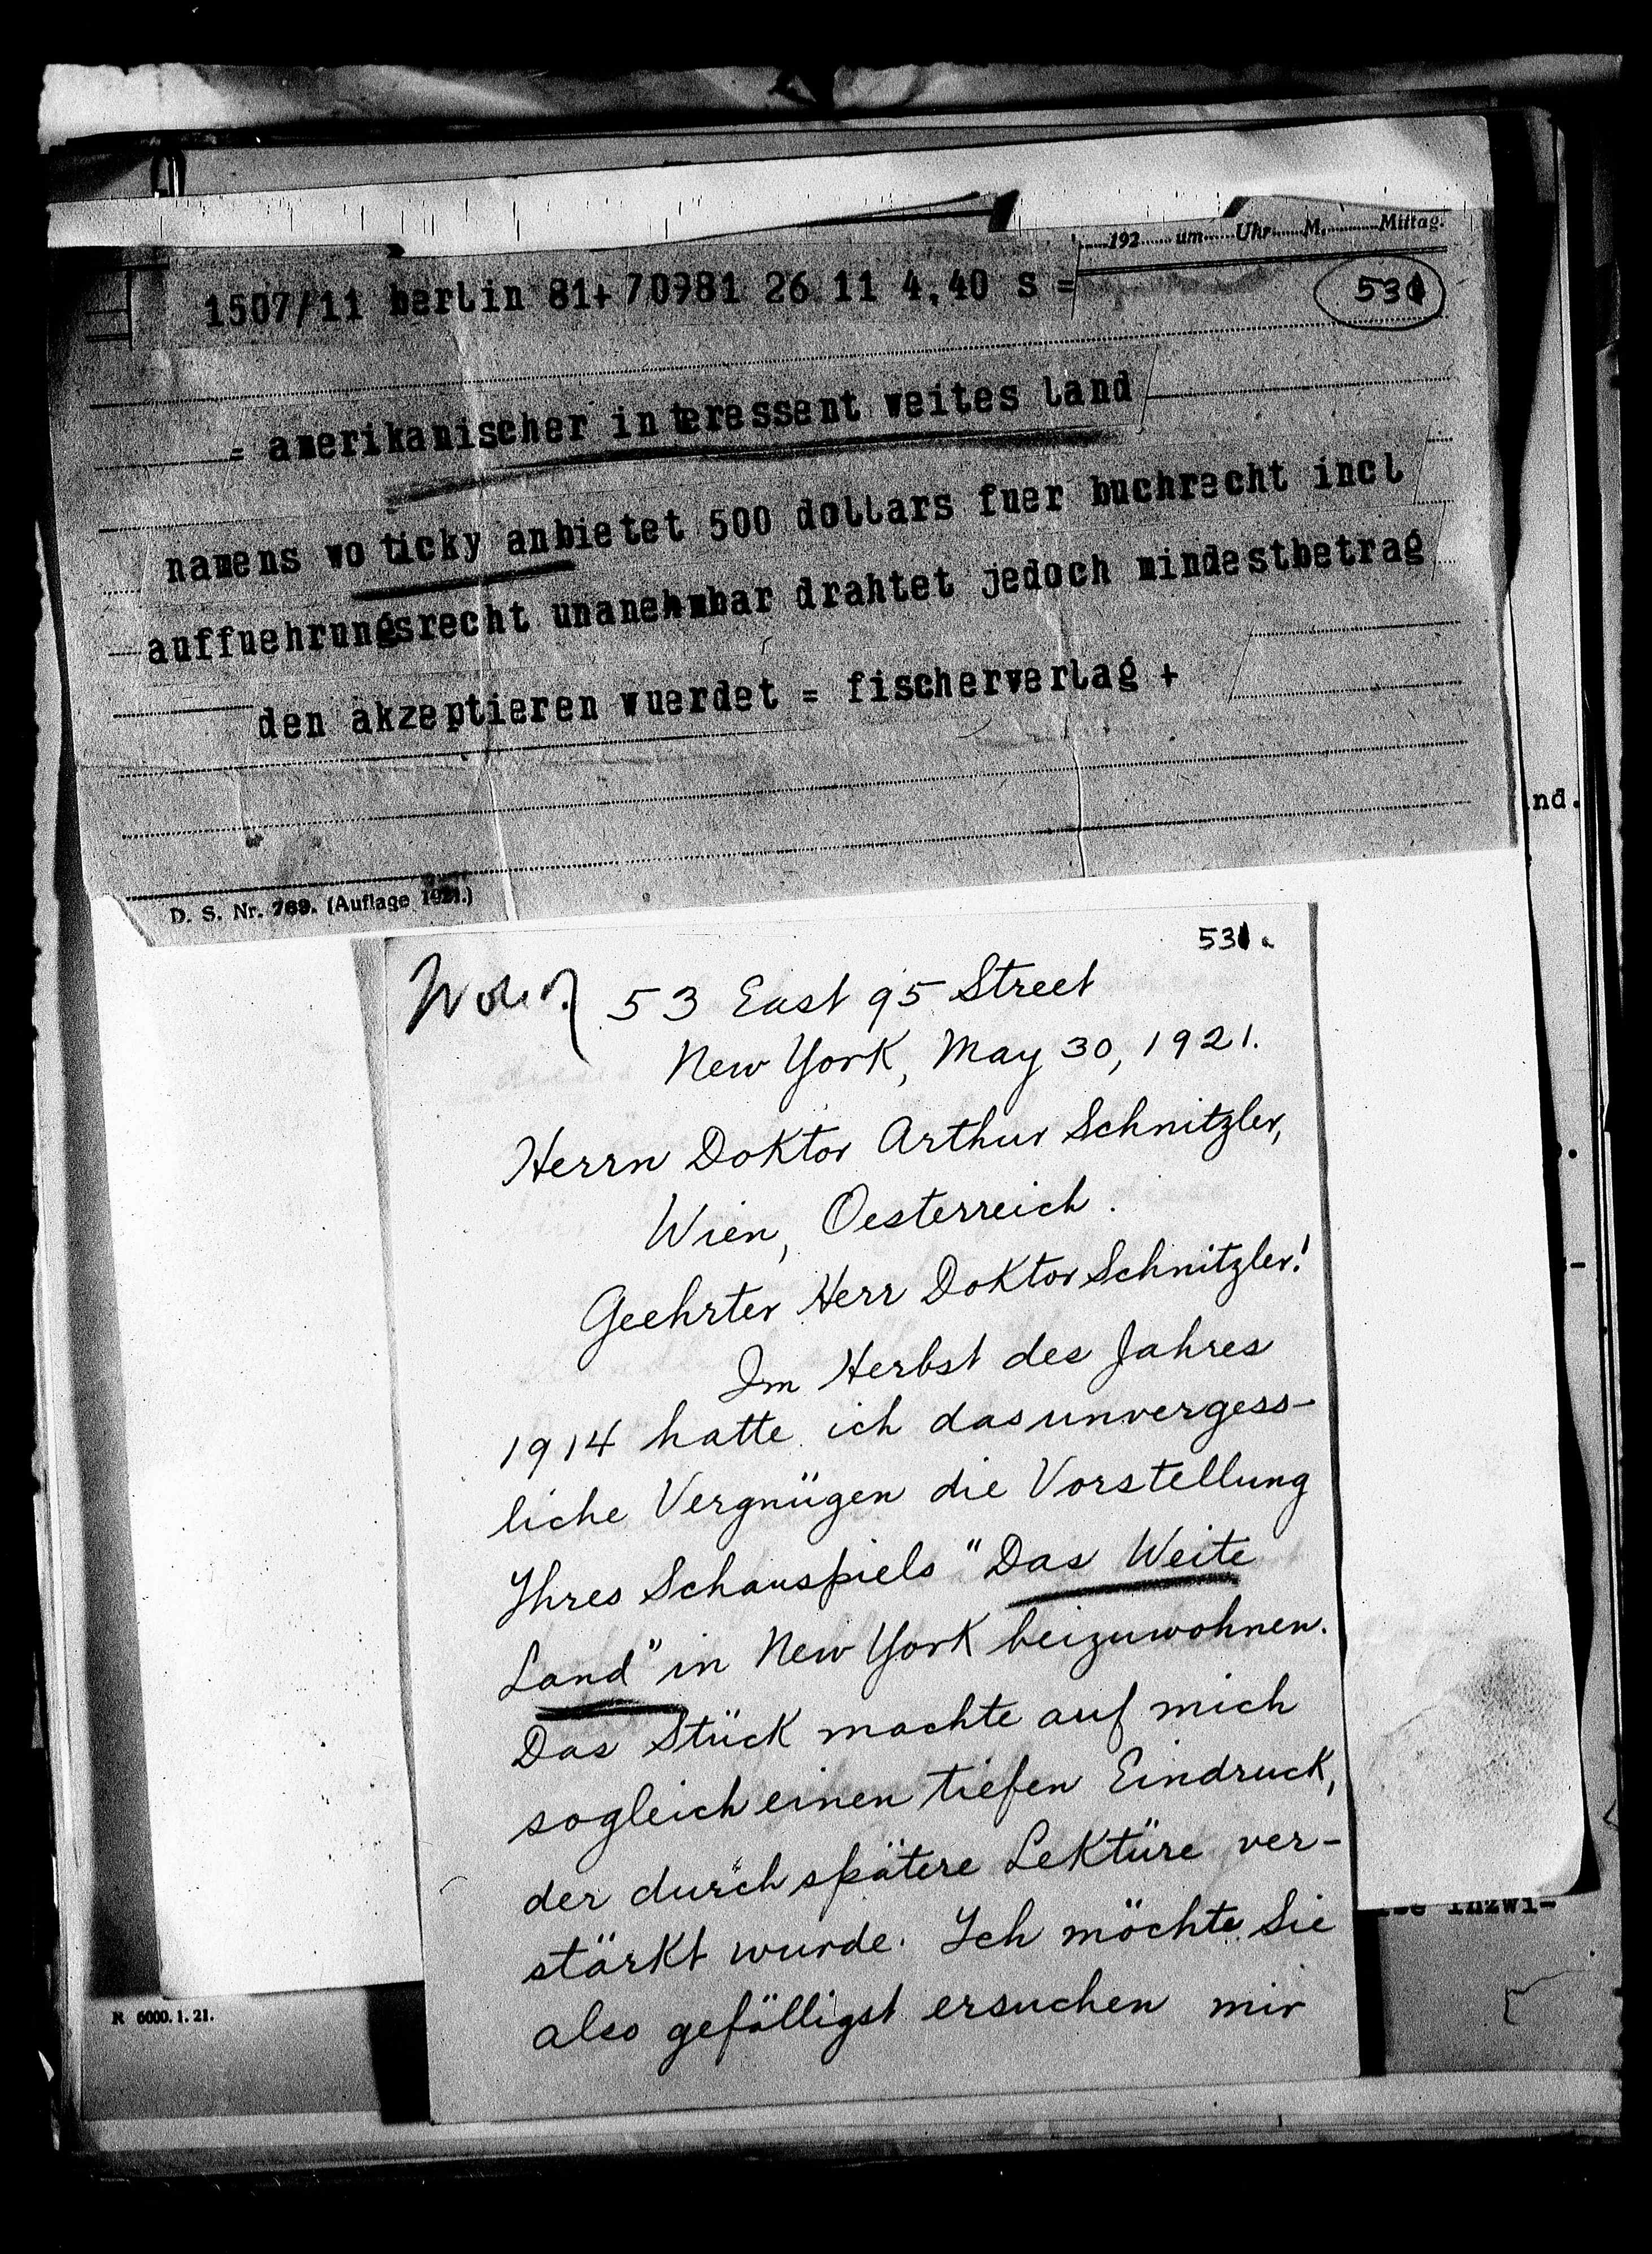 192 um Uhr M. Mittag.
1507/11 berlin 81+ 70981 26 11 4.40 s =
531
= amerikanischer interessent weites land
namens woticky anbietet 500 dollars fuer buchrecht incl
auffuehrungsrecht unanehmbar drahtet jedoch mindestbetrag
den akzeptieren wuerdet = fischerverlag +
D. S. Nr. 769. (Auflage 1921.)
nd.
531.
53 East 95 Street
New York, May 30, 1921.
Herrn Doktor Arthur Schnitzler,
Wien, Oesterreich.
Geehrter Herr Doktor Schnitzler!
Im Herbst des Jahres
1914 hatte ich das unvergess-
liche Vergnügen die Vorstellung
Ihres Schauspiels "Das Weite
Land" in New York beizuwohnen.
Das Stück machte auf mich
sogleich einen tiefen Eindruck,
der durch spätere Lektüre ver-
stärkt wurde. Ich möchte Sie
also gefälligst ersuchen mir
inzwi-
R 6000. 1. 21.